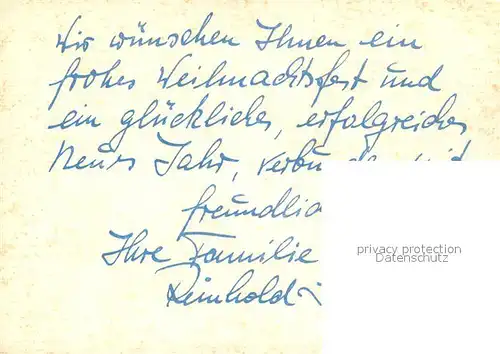 Wir wünschen Ihnen ein
frohes Weihnachtsfest und
ein glückliches, erfolgreiches
Neues Jahr,
Ihre Familie
Reinhold
privacy protection
Datenschutz